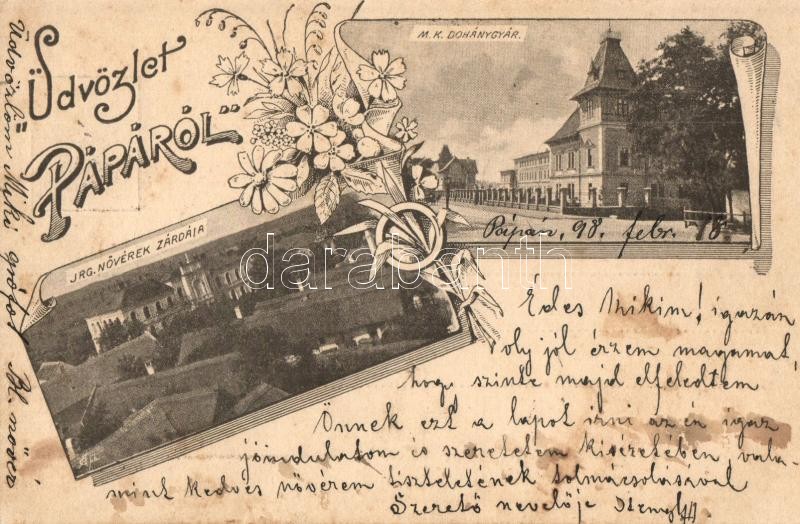 "Üdvözlet
PÁPÁRÓL"
M. K. DOHÁNYGYÁR.
JRG. NŐVÉREK ZÁRDÁJA
darabanth
Pápán, 98. febr. 15
Édes Mikim! igazán
oly jól érzem magamat,
hogy szinte majd elfeledtem
Önnek ezt a lapot irni az én igaz
jóindulatom és szeretetem kiséretében, vala-
mint kedves nővérem tiszteletének tolmácsolásával
Szerető nevelője
Üdvözlöm Miki grófot Bl. nővér